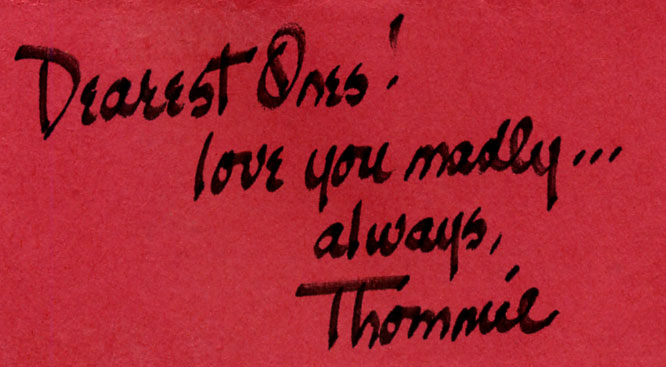 Dearest Ones!
love you madly...
always,
Thommie